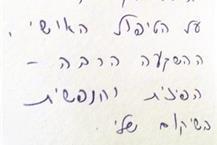 על הטיפול האישי,
ההשקעה הרבה –
הפיזית והנפשית
בשיקום שלי.